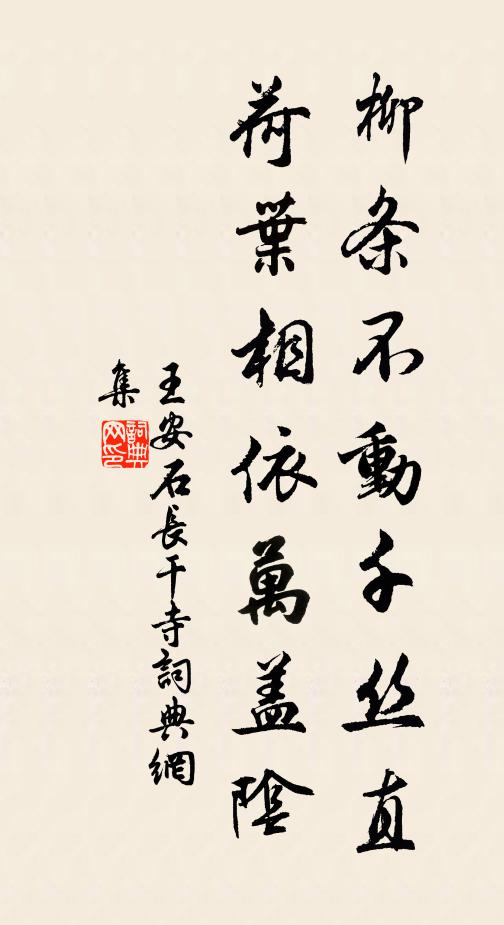 柳条不動千丝直
荷葉相依萬盖陰
王安石長干寺詞典網
集
詞典网印